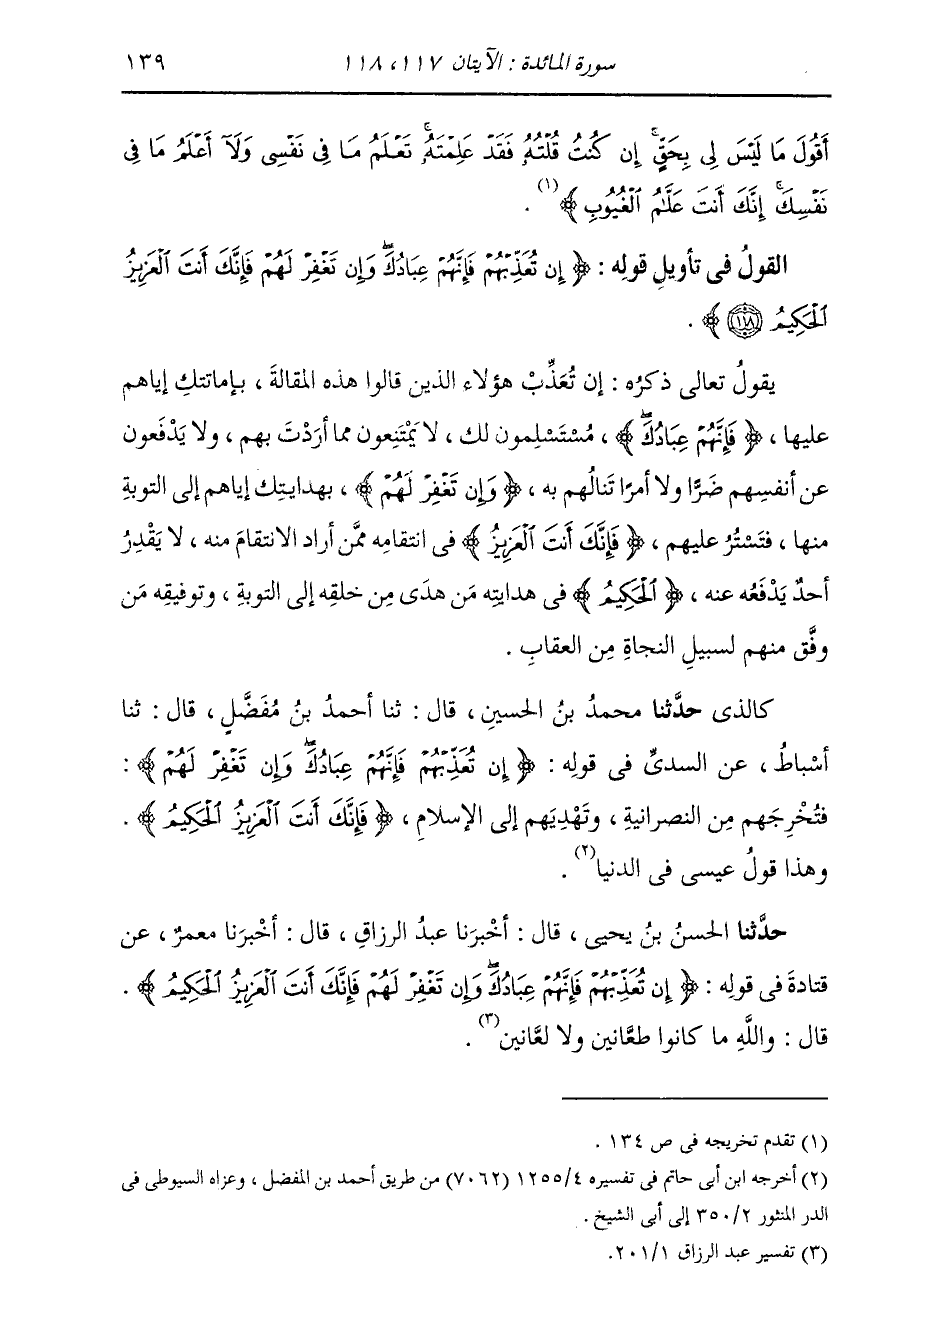 سورة المائدة : الآيتان ١١٧، ١١٨ ١٣٩
أَقُولَ مَا لَيْسَ لِى بِحَقٍّ ۚ إِن كُنتُ قُلْتُهُۥ فَقَدْ عَلِمْتَهُۥ ۚ تَعْلَمُ مَا فِى نَفْسِى وَلَآ أَعْلَمُ مَا فِى
نَفْسِكَ ۚ إِنَّكَ أَنتَ عَلَّـٰمُ ٱلْغُيُوبِ ﴾(١) .
القولُ فى تأويلِ قولِه : ﴿ إِن تُعَذِّبْهُمْ فَإِنَّهُمْ عِبَادُكَ ۖ وَإِن تَغْفِرْ لَهُمْ فَإِنَّكَ أَنتَ ٱلْعَزِيزُ
ٱلْحَكِيمُ (١١٨) ﴾ .
يقولُ تعالى ذكرُه : إن تُعَذِّبْ هؤلاء الذين قالوا هذه المقالةَ ، بإماتتِك إياهم
عليها ، ﴿ فَإِنَّهُمْ عِبَادُكَ ۖ ﴾ ، مُسْتَسْلِمون لك ، لا يَمْتَنِعون مما أرَدْتَ بهم ، ولا يَدْفَعون
عن أنفسِهم ضَرًّا ولا أمرًا تَنالُهم به ، ﴿ وَإِن تَغْفِرْ لَهُمْ ﴾ ، بهدايتِك إياهم إلى التوبةِ
منها ، فتَسْتُرُ عليهم ، ﴿ فَإِنَّكَ أَنتَ ٱلْعَزِيزُ ﴾ فى انتقامِه ممَّن أراد الانتقامَ منه ، لا يَقْدِرُ
أحدٌ يَدْفَعُه عنه ، ﴿ ٱلْحَكِيمُ ﴾ فى هدايتِه مَن هدَى مِن خلقِه إلى التوبةِ ، وتوفيقِه مَن
وفَّق منهم لسبيلِ النجاةِ مِن العقابِ .
كالذى حدَّثنا محمدُ بنُ الحسينِ ، قال : ثنا أحمدُ بنُ مُفَضَّلٍ ، قال : ثنا
أسْباطُ ، عن السدىِّ فى قولِه : ﴿ إِن تُعَذِّبْهُمْ فَإِنَّهُمْ عِبَادُكَ ۖ وَإِن تَغْفِرْ لَهُمْ ﴾ :
فتُخْرِجَهم مِن النصرانيةِ ، وتَهْدِيَهم إلى الإسلامِ ، ﴿ فَإِنَّكَ أَنتَ ٱلْعَزِيزُ ٱلْحَكِيمُ ﴾ .
وهذا قولُ عيسى فى الدنيا(٢) .
حدَّثنا الحسنُ بنُ يحيى ، قال : أخْبرَنا عبدُ الرزاقِ ، قال : أخْبرَنا معمرٌ ، عن
قتادةَ فى قولِه : ﴿ إِن تُعَذِّبْهُمْ فَإِنَّهُمْ عِبَادُكَ ۖ وَإِن تَغْفِرْ لَهُمْ فَإِنَّكَ أَنتَ ٱلْعَزِيزُ ٱلْحَكِيمُ ﴾ .
قال : واللَّهِ ما كانوا طعَّانين ولا لعَّانين(٣) .
(١) تقدم تخريجه فى ص ١٣٤ .
(٢) أخرجه ابن أبى حاتم فى تفسيره ١٢٥٥/٤ (٧٠٦٢) من طريق أحمد بن المفضل ، وعزاه السيوطى فى
الدر المنثور ٣٥٠/٢ إلى أبى الشيخ .
(٣) تفسير عبد الرزاق ٢٠١/١.